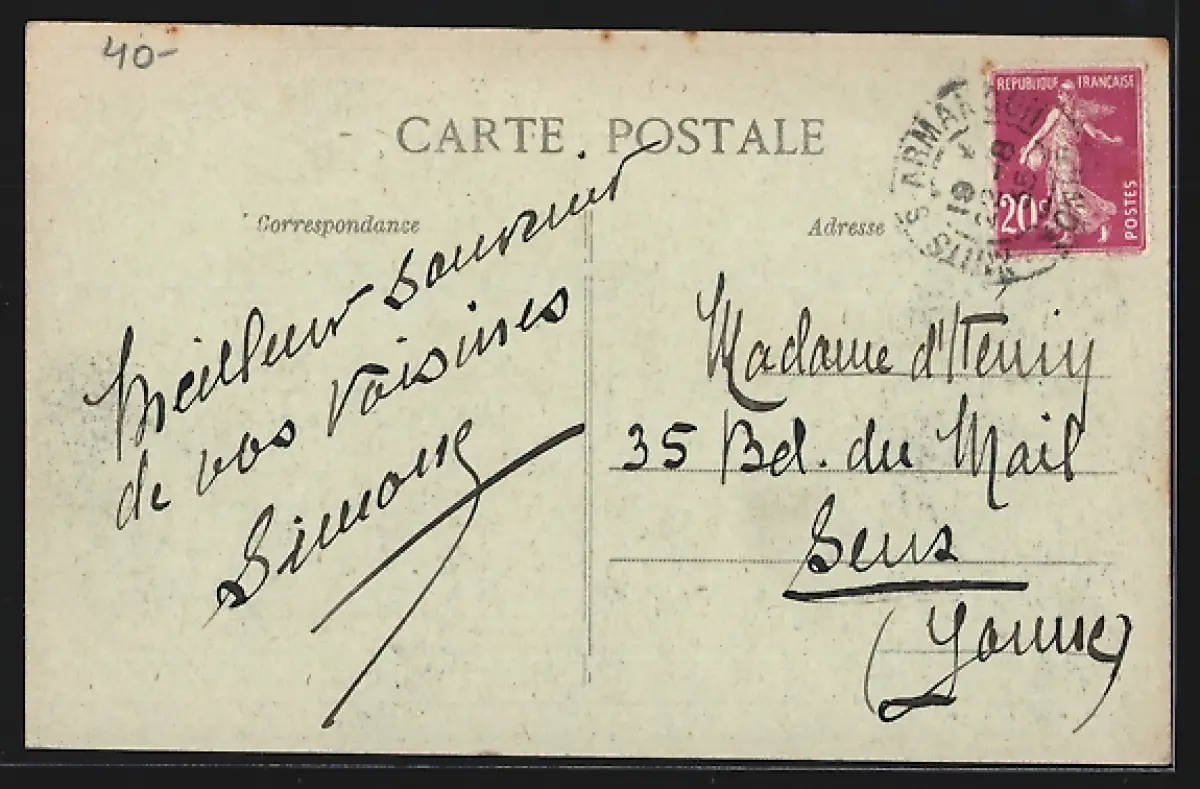 40-
CARTE POSTALE
Correspondance
Adresse
REPUBLIQUE FRANÇAISE
20c
POSTES
NUITS S ARMANÇON
Meilleur souvenir
de vos voisines
Simone
Madame d'Héniy
35 Bd. du Mail
Sens
(Yonne)